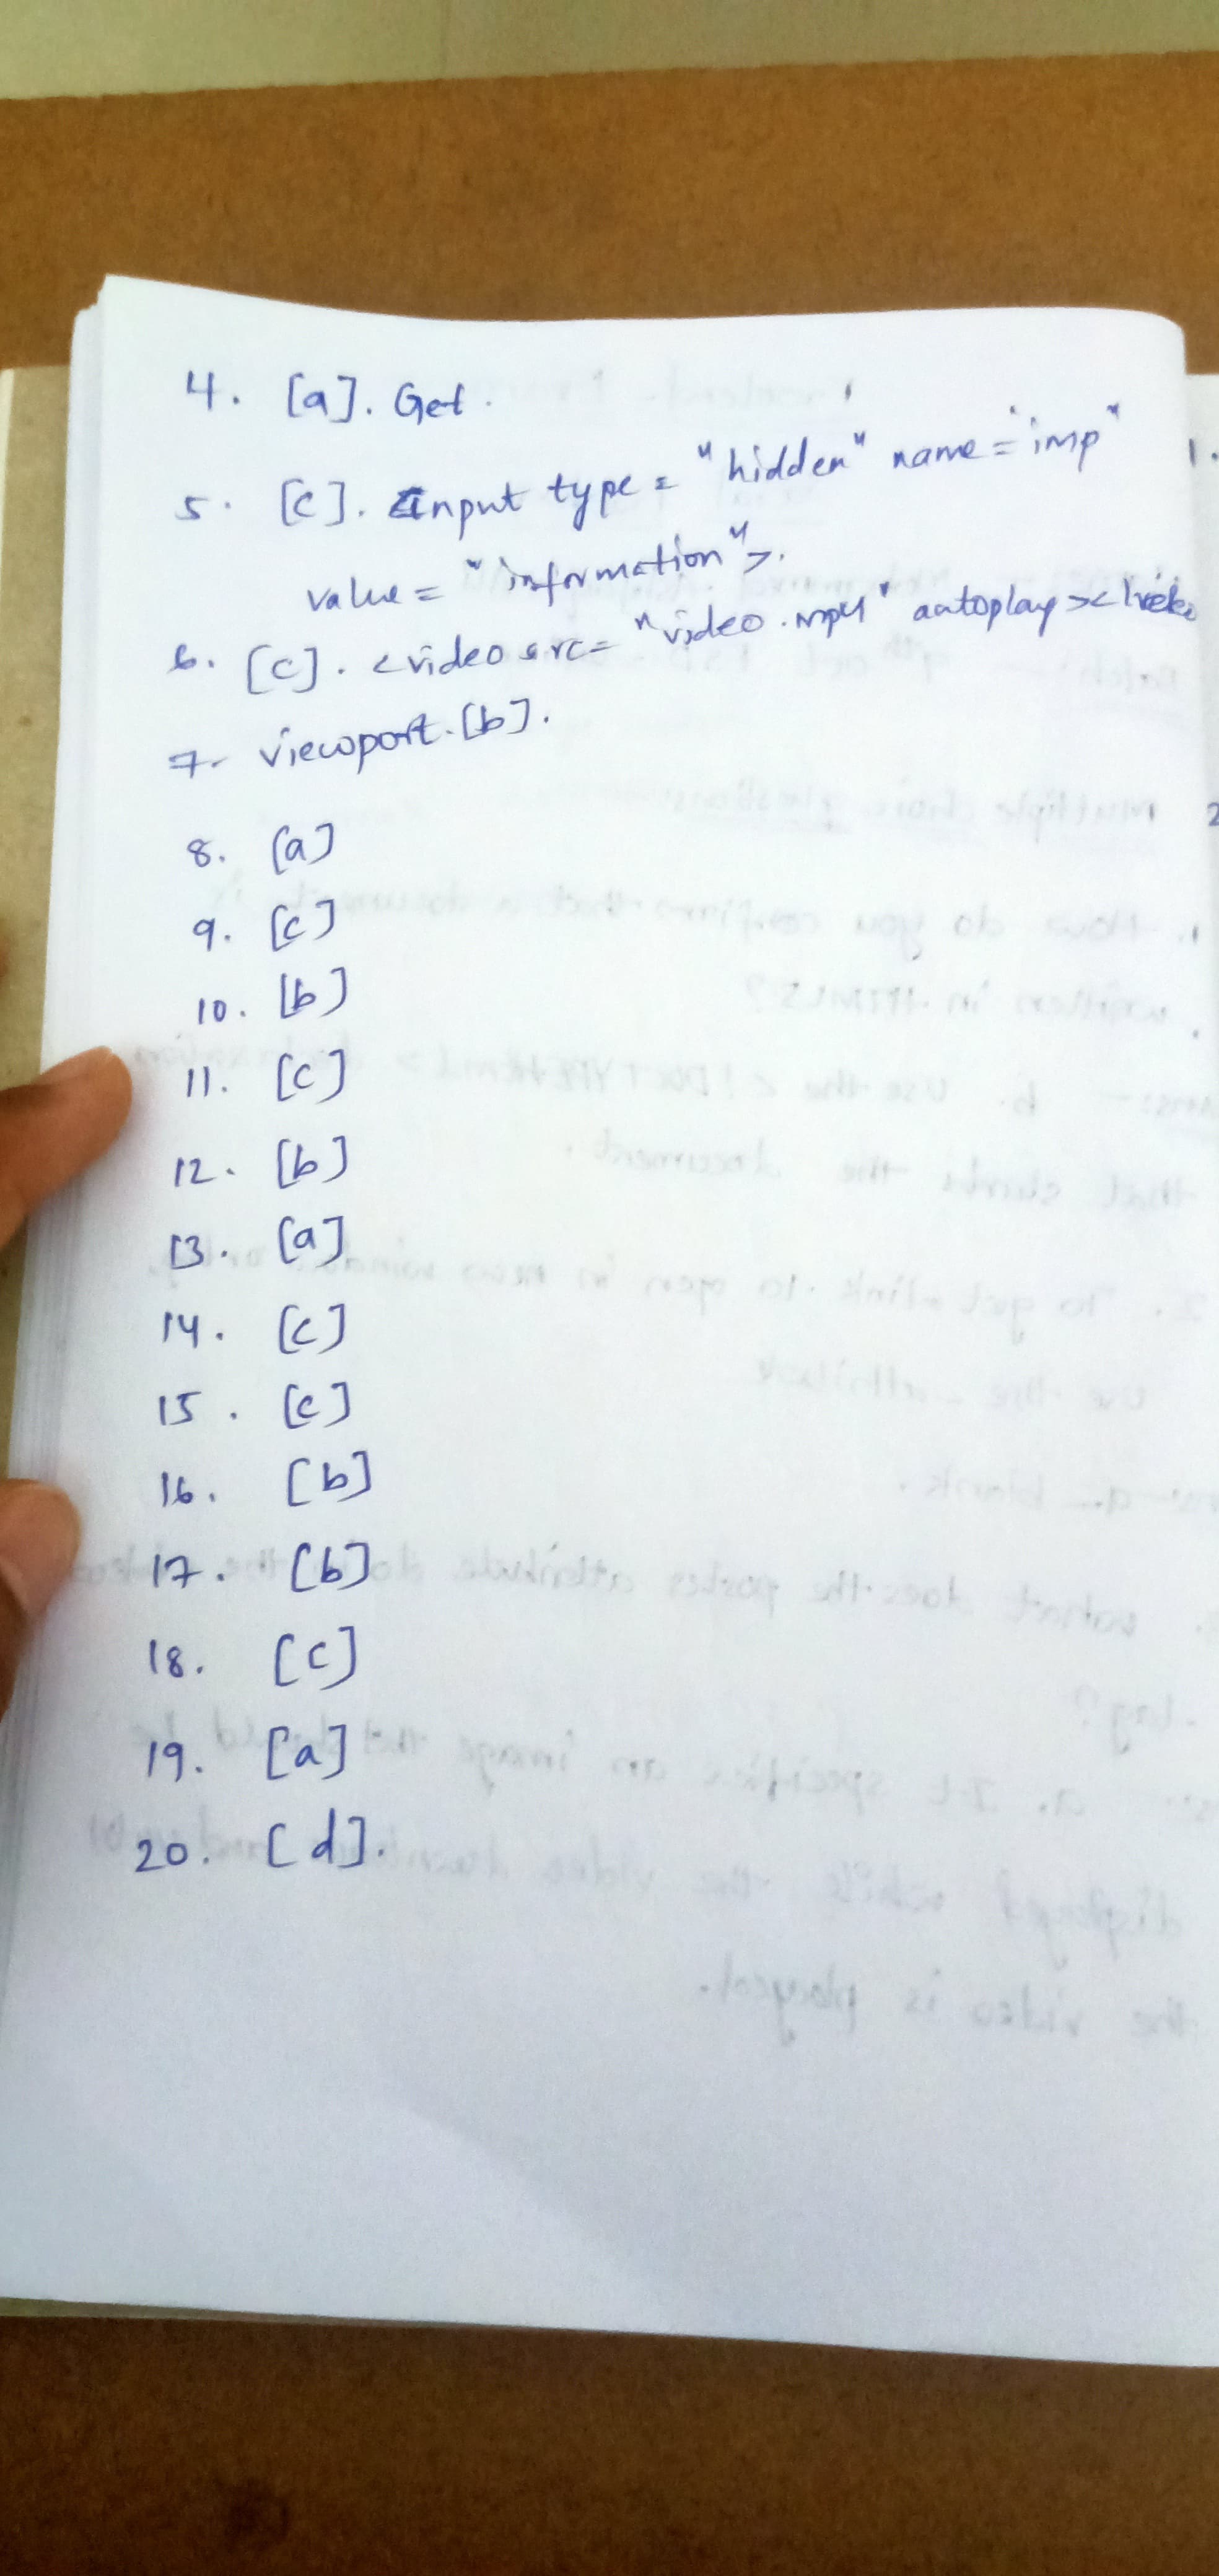 4. [a]. Get.
5. [c]. <input type = "hidden" name = "imp"
value = "information">.
6. [c]. <video src= "video.mp4" autoplay><
7. viewport.[b].
8. [a]
9. [c]
10. [b]
11. [c]
12. [b]
13. [a]
14. [c]
15. [c]
16. [b]
17. [b]
18. [c]
19. [a]
20. [d].
1.
2